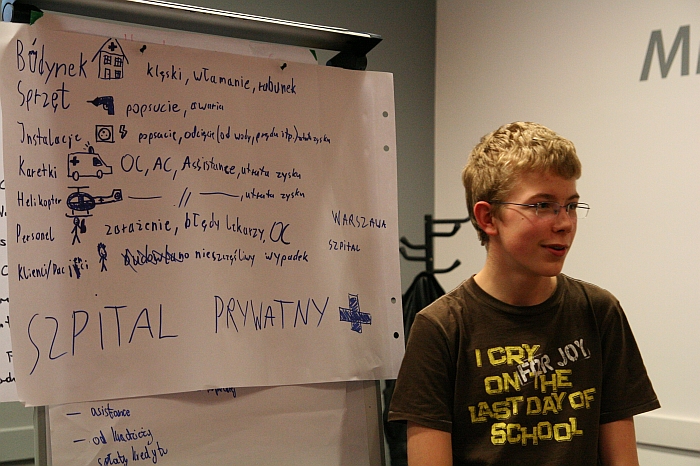 Budynek klęski, włamanie, rabunek
Sprzęt popsucie, awaria
Instalacje popsucie, odcięcie (od wody, prądu itp.)
Karetki OC, AC, Assistance, utrata zysku
Helikopter — // — , utrata zysku
Personel zarażenie, błędy lekarzy, OC
Klienci/Pacjęci nieszczęśliwy wypadek
WARSZAWA
SZPITAL
SZPITAL PRYWATNY
— asistance
— od kradzieży
spłaty kredytu
M
I CRY
FOR JOY,
ON THE
LAST DAY OF
SCHOOL